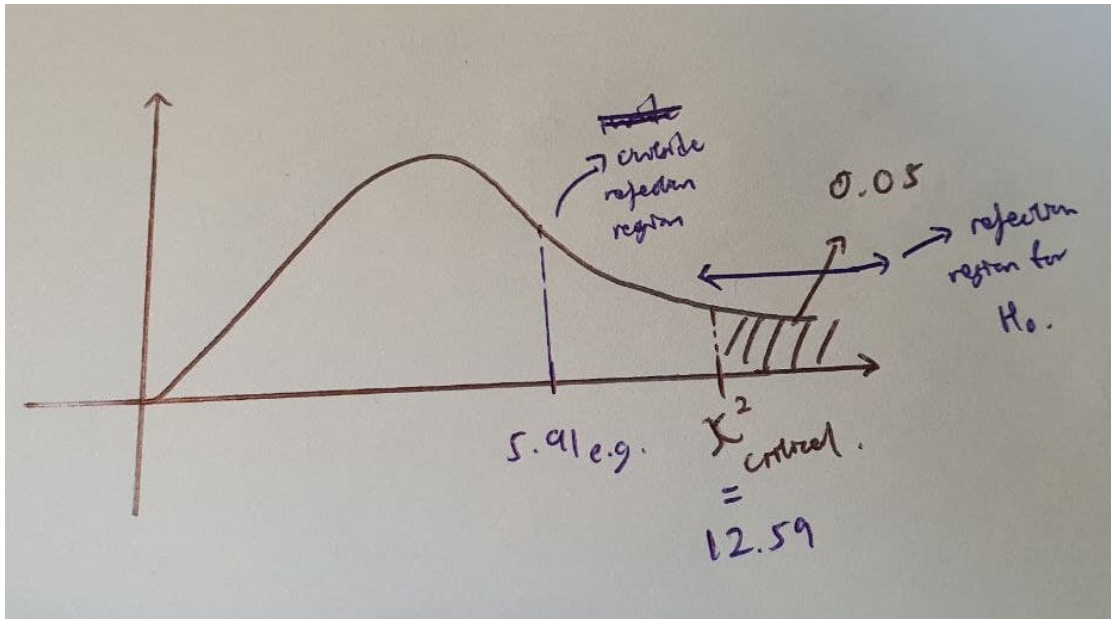 outside
rejection
region
0.05
rejection
region for
H₀.
5.91 e.g.
χ²
critical.
=
12.59